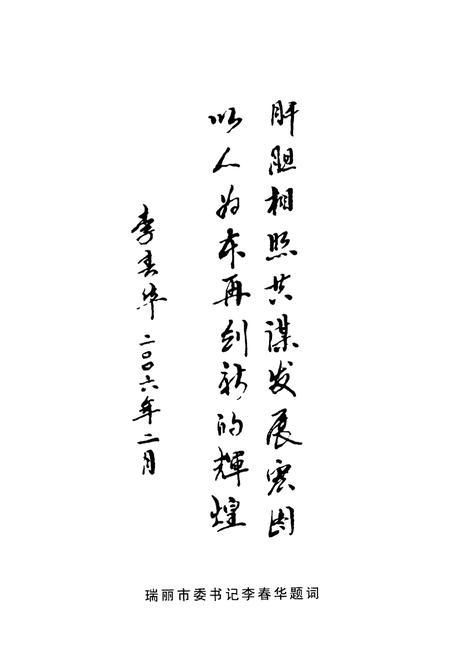 肝胆相照共谋发展宏图
以人为本再创新的辉煌
李春华二〇〇六年二月
瑞丽市委书记李春华题词